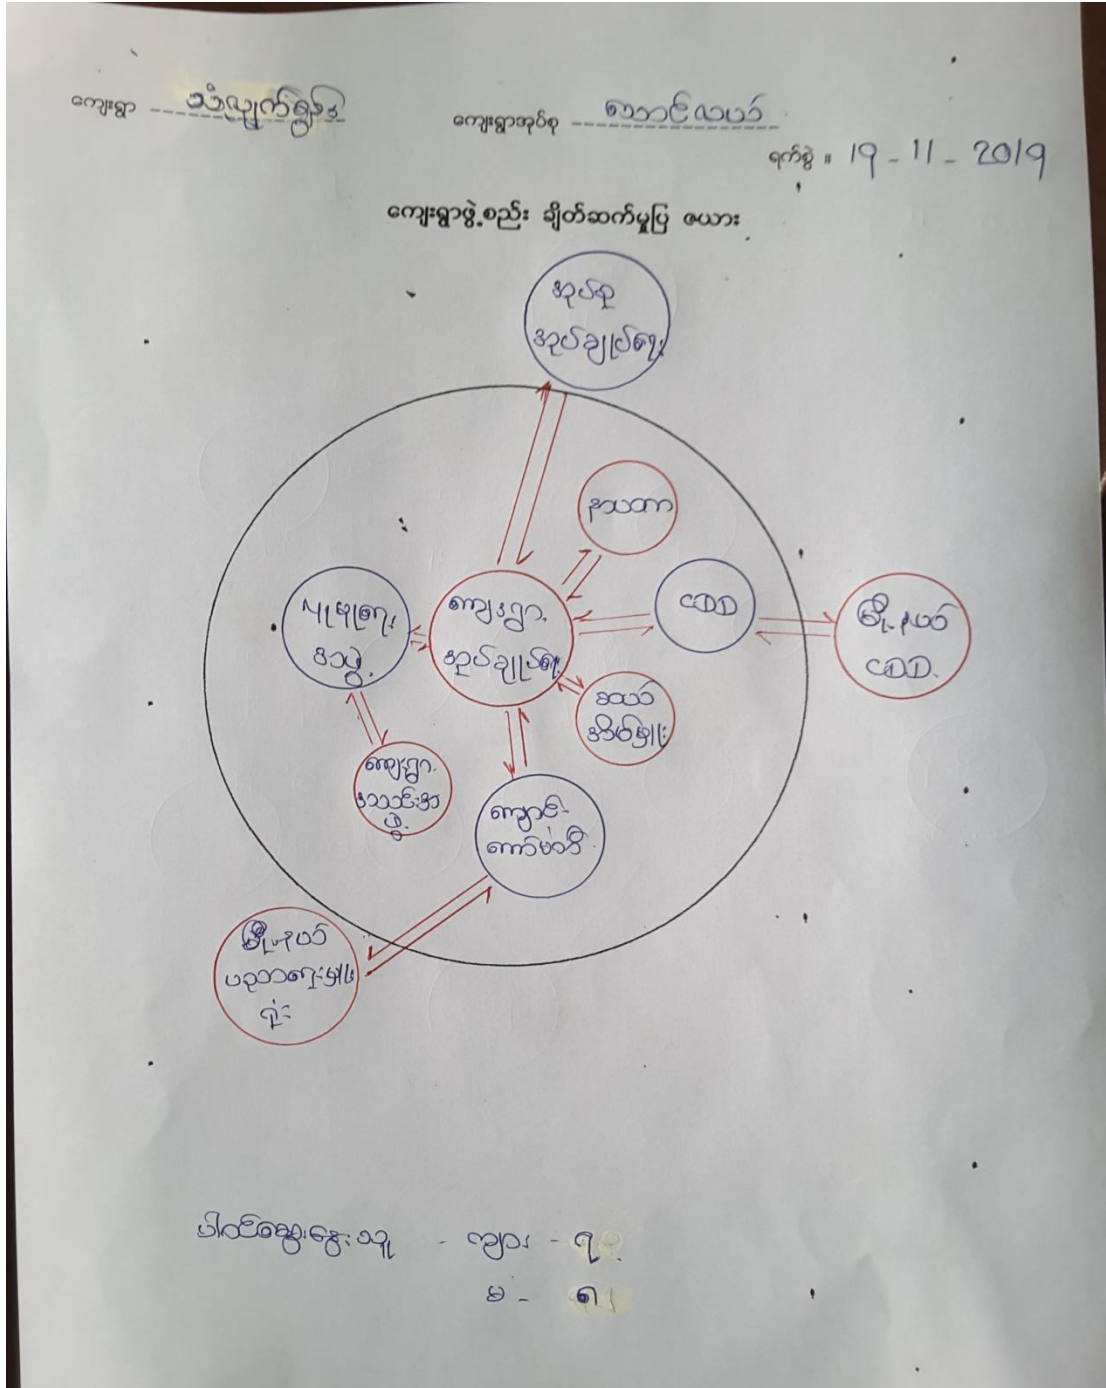 ကျေးရွာ သံလျှက်စွန်း ကျေးရွာအုပ်စု သောင်လယ်
ရက်စွဲ ။ 19 - 11 - 2019
ကျေးရွာဖွဲ့စည်း ချိတ်ဆက်မှုပြ ဇယား
အုပ်စု
အုပ်ချုပ်ရေး
နာယက
ကျေးရွာ
အုပ်ချုပ်ရေး
CDD
မြို့နယ်
CDD
အဖွဲ့
ဆယ်
အိမ်မှူး
ကျေးရွာ
အဖွဲ့
ကျောင်း
ကော်မတီ
မြို့နယ်
ပညာရေးမှူး
ရုံး
ပါဝင်ဆွေးနွေးသူ - ကျား - ၇
မ - ၈